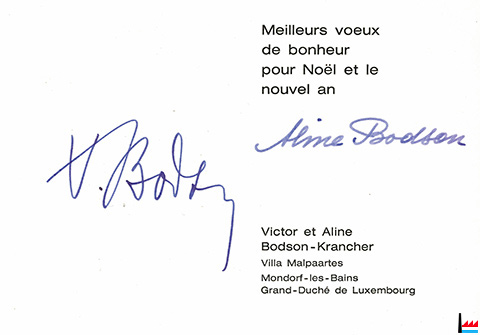 Meilleurs voeux
de bonheur
pour Noël et le
nouvel an
Aline Bodson
V. Bodson
Victor et Aline
Bodson-Krancher
Villa Malpaartes
Mondorf-les-Bains
Grand-Duché de Luxembourg